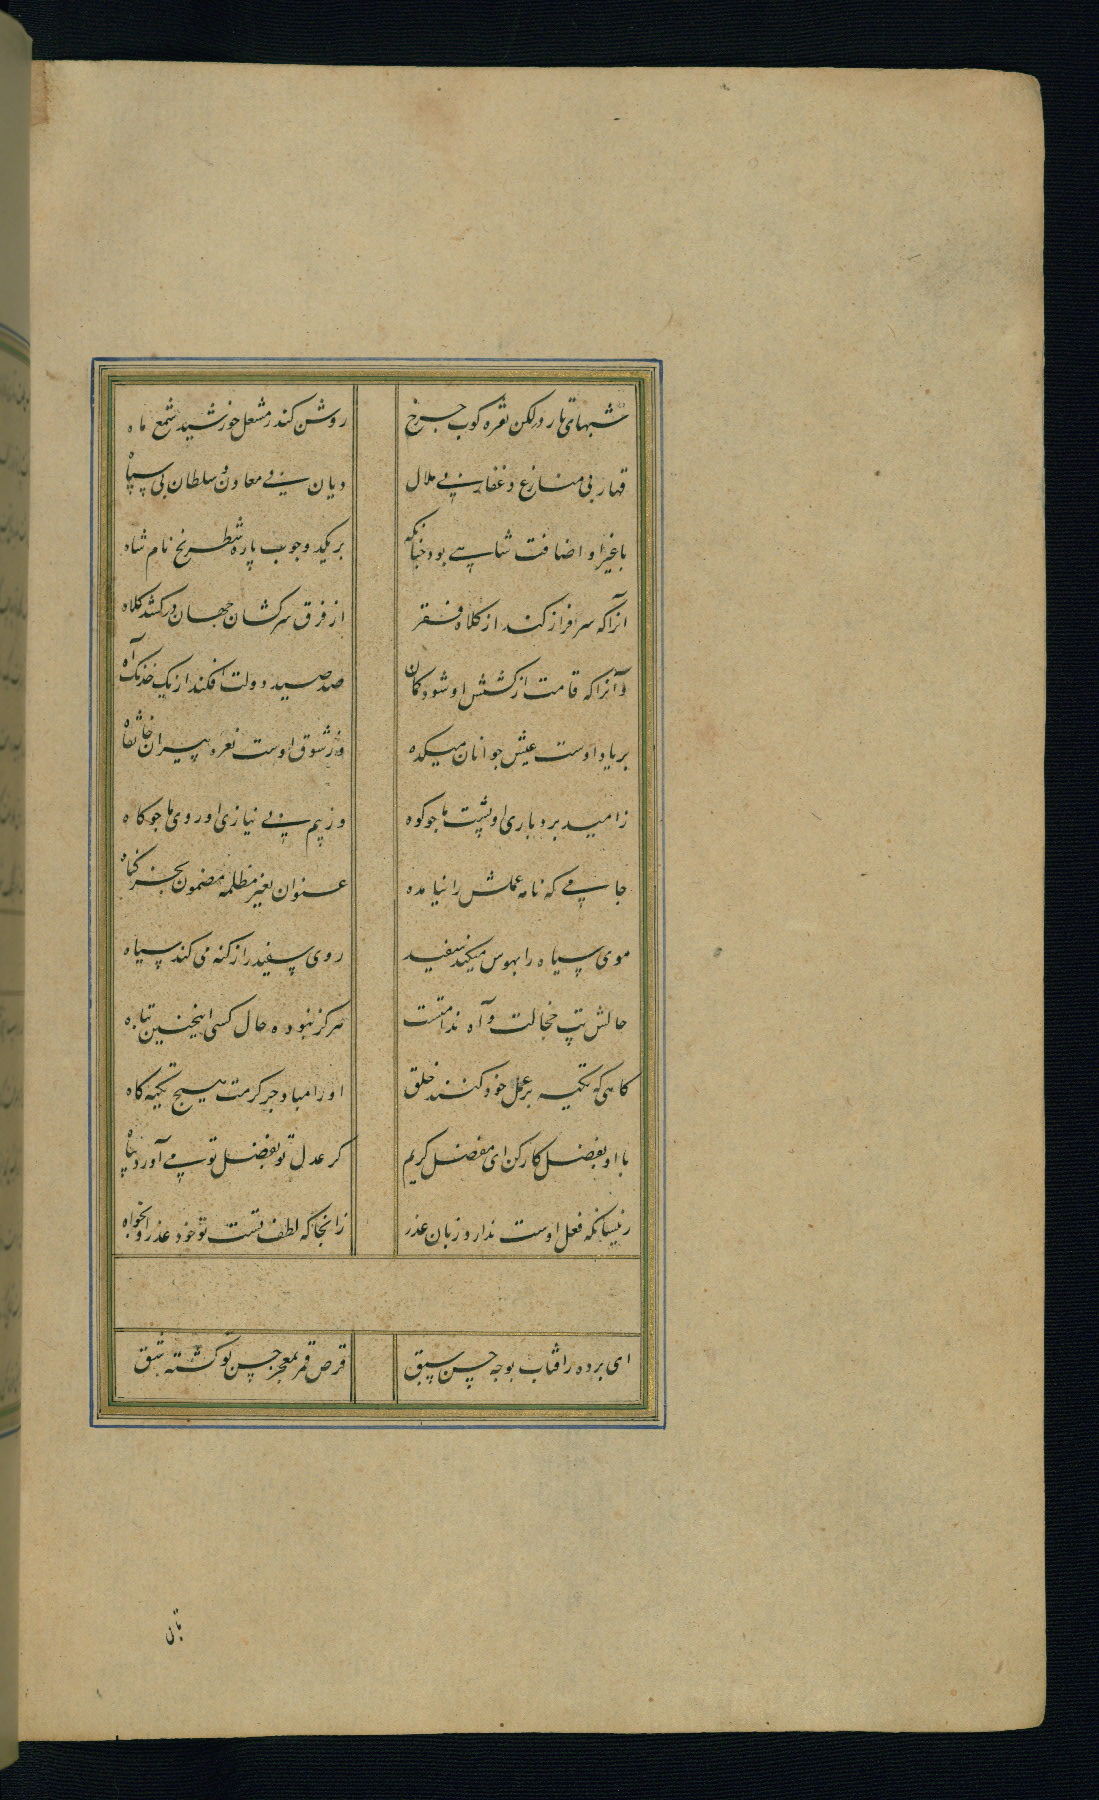 شبهای تار در لکن نقره کوب چرخ روشن کند ز مشعل خورشید شمع ماه
قهار بی منازع و غفار بی ملال دیان بی معاون و سلطان بی سپاه
با غیر او اضافت شاهی بود چنانکه بر یکدو چوب پاره شطرنج نام شاه
آنرا که سرافراز کند از کلاه فقر از فرق سرکشان جهان درکشد کلاه
وآنرا که قامت از کشش او شود کمان صد صید دولت افکند از یک خدنک آه
بر یاد اوست عیش جوانان میکده وز شوق اوست نعره پیران خانقاه
ز امید بردباری او پشت ها جو کوه وز بیم بی نیازی او روی ها جو کاه
جامی که نامه عملش را نیامده عنوان بغیر مظلمه مضمون بجز کناه
موی سیاه را بهوس میکند سفید روی سفید را ز کنه می کند سیاه
حالش تب خجالت و آه ندامتست هرکز نبوده حال کسی اینچنین تباه
کاهی که تکیه بر عمل خود کنند خلق او را مباد جز کرمت هیچ تکیه کاه
با او بفضل کار کن ای مفضل کریم کز عدل تو بفضل تو می آورد پناه
زینسانکه فعل اوست ندارد زبان عذر زانجا که لطف تست تو خود عذر او بخواه
ای برده ز آفتاب بوجه حسن سبق قرص قمر بمعجز حسن تو کشته شق
تابان